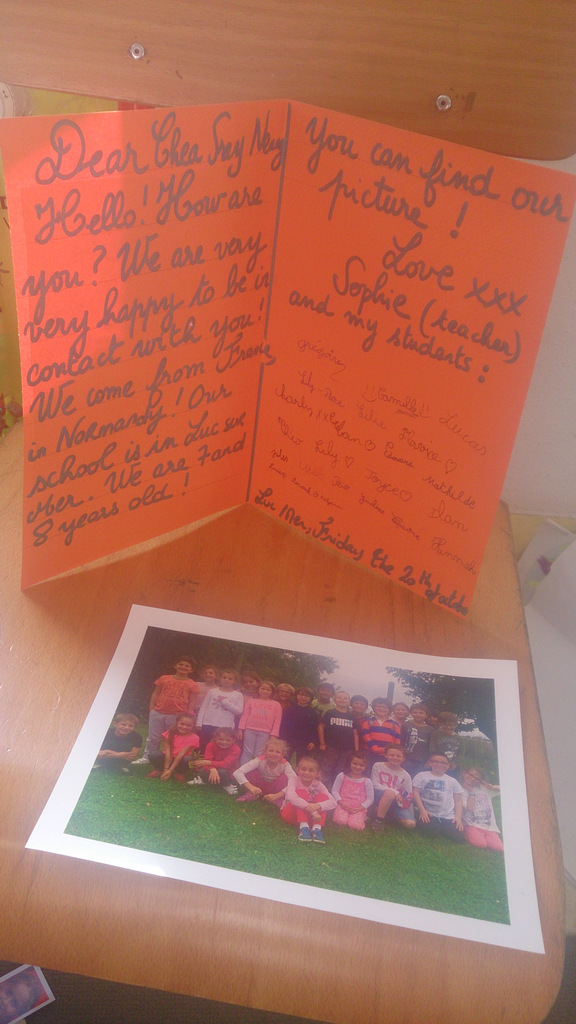 Dear Chea Srey Neng
Hello! How are
you? We are very
very happy to be in
contact with you!
We come from France
in Normandy! Our
school is in Luc sur
Mer. We are 7 and
8 years old!
You can find our
picture!
Love xxx
Sophie (teacher)
and my students:
Camille Lucas
Lily-Rose Marina
Charly Mathilde
Lily Joyce Dan
Luc Mer, Friday the 20th of october
PUMA